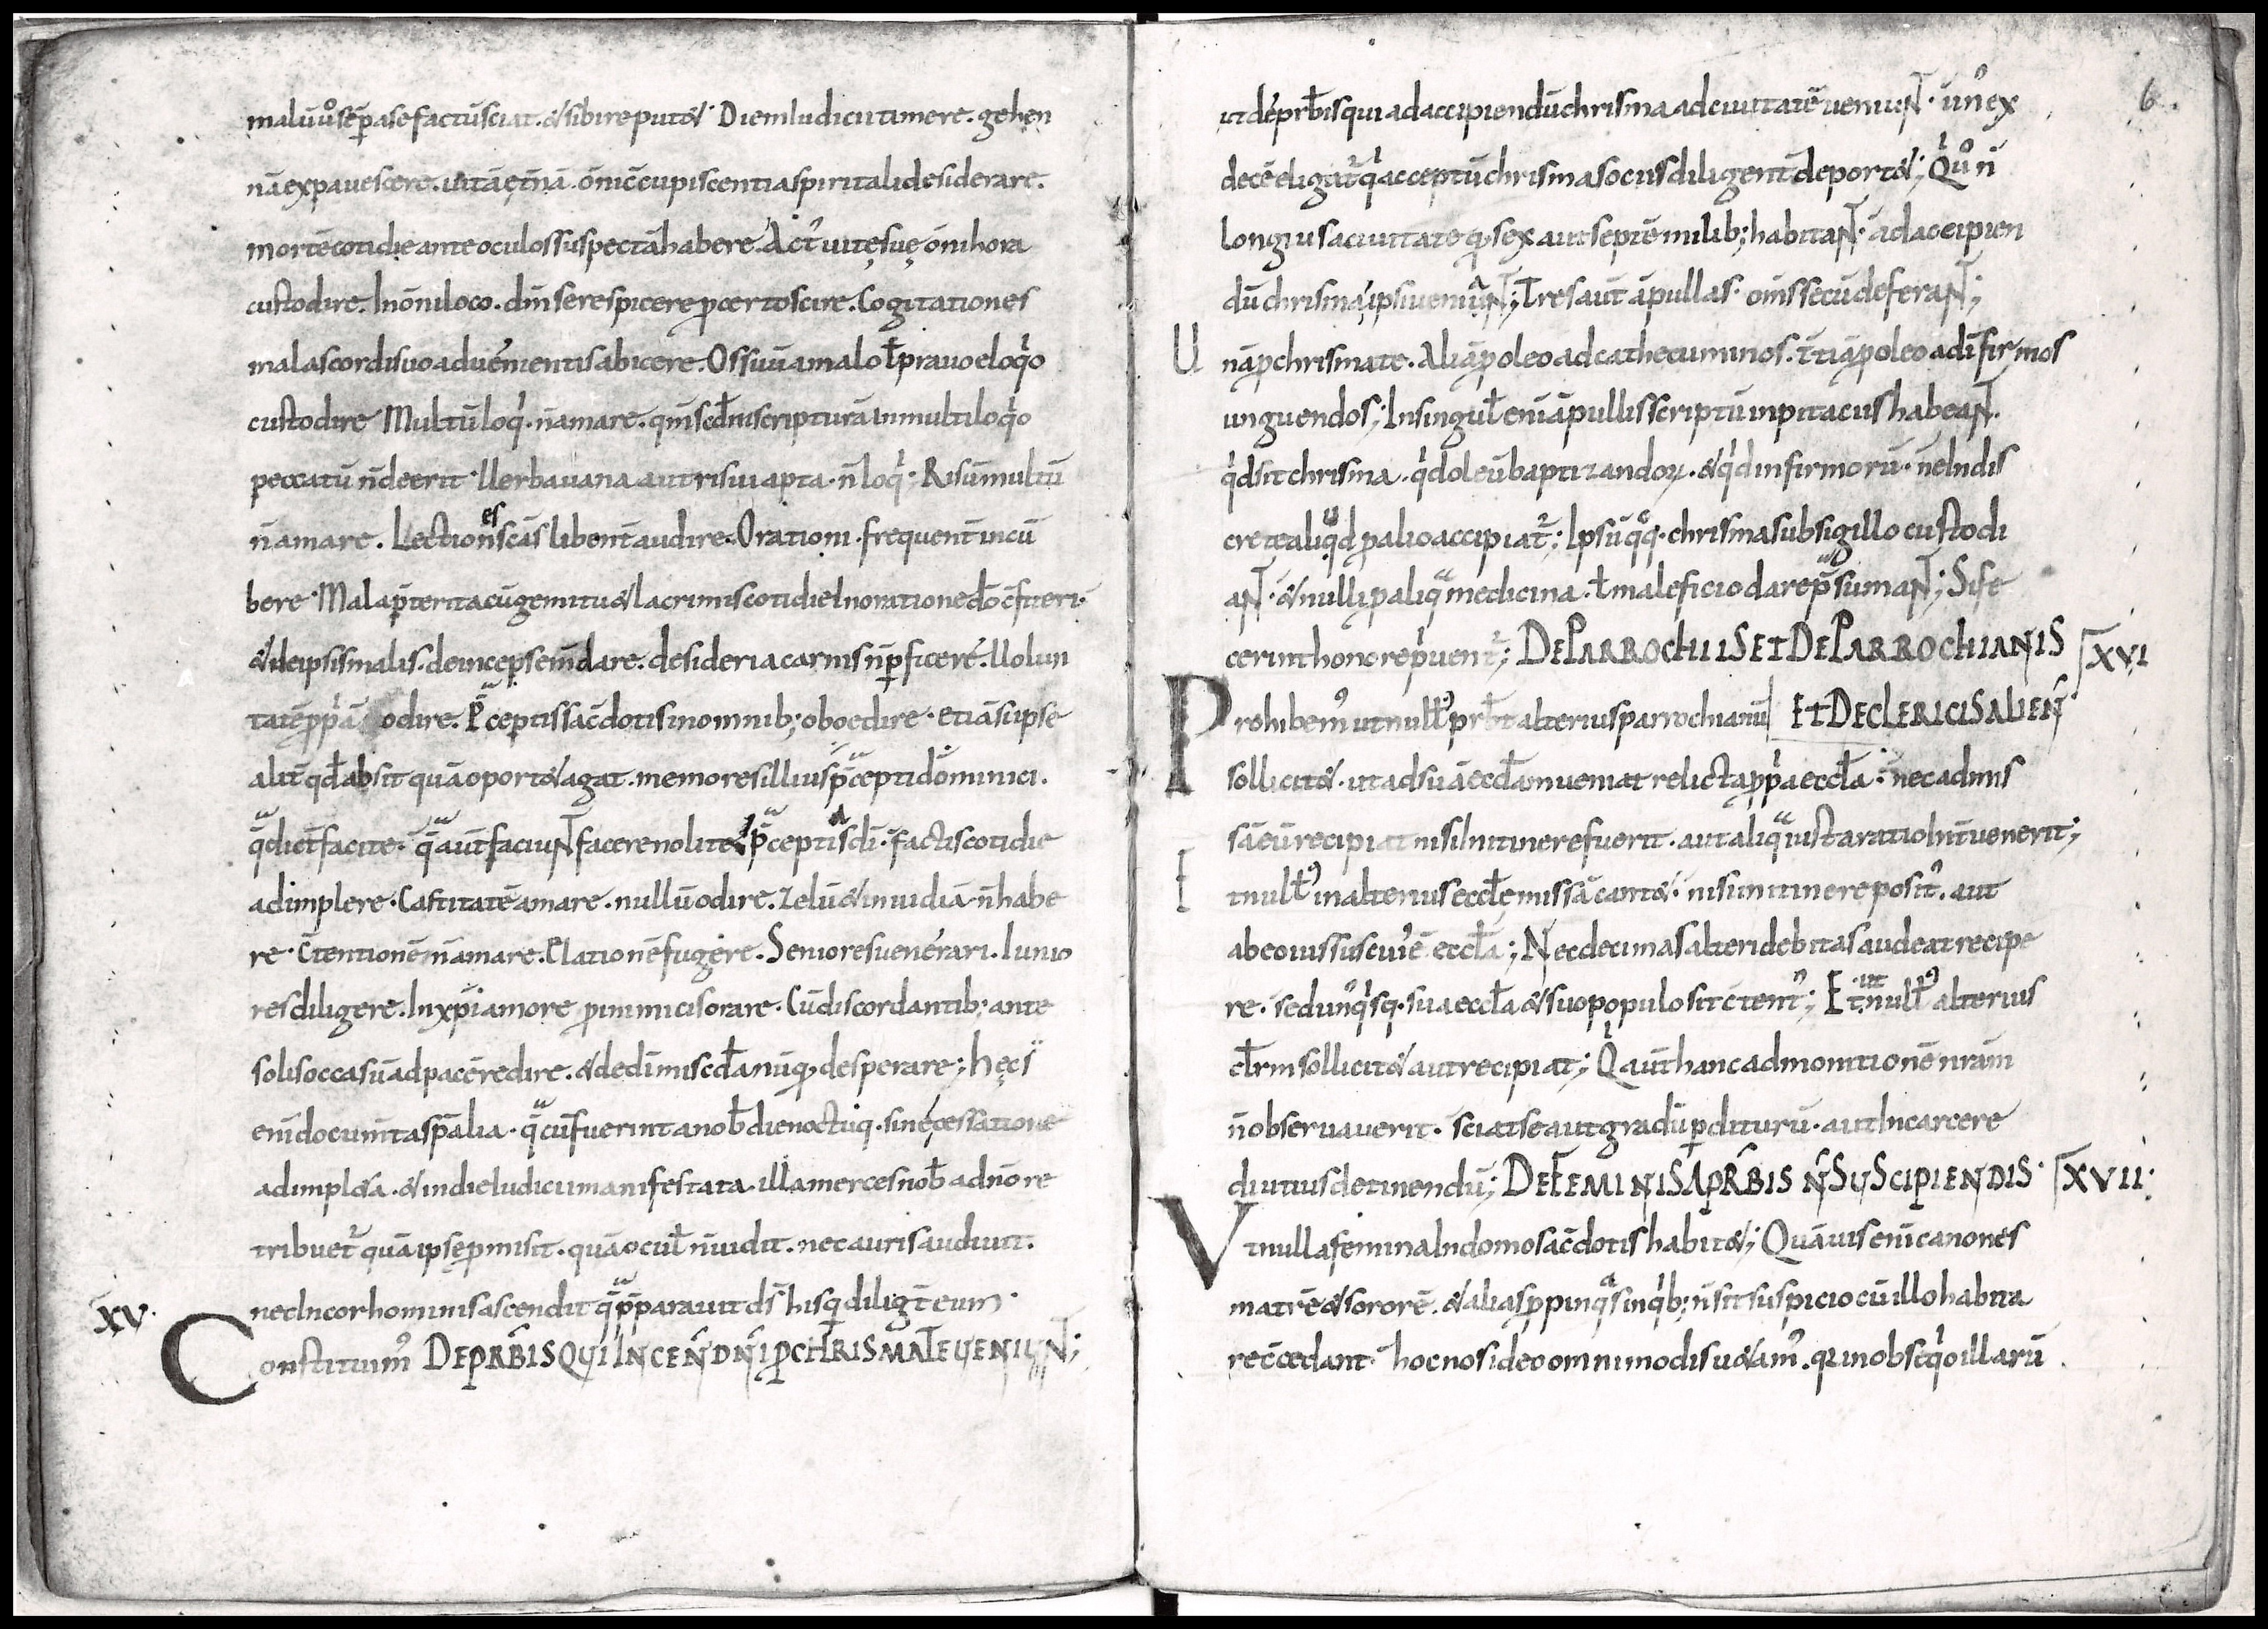 malū u͛o sēp̄ a se factū sciat. & sibi reput&. Diem Iudicii timere. gehen
nā expauescere. uitā ęt̄nā. ōni c̄cupiscentia spiritali desiderare.
mortē cotidie ante oculos suspectā habere. Act᷒ uitę suę ōni hora
custodire. In ōni loco. dm̄ se respicere ꝓ certo scire. Cogitationes
malas cordi suo aduenientis abicere. Os suū a malo ł prauo eloq̇o
custodire Multū loq̇. n̄ amare. qm̄ scdm̄ scripturā in multiloq̇o
peccatū n̄ deerit. Uerba uana aut risui apta. n̄ loq̇. Risū multū
n̄ amare. Lectiones scās libent̄ audire. Orationi. frequent̄ incū
bere. Mala p̄terita cū gemitu & lacrimis cotidie In oratione do c̄fiteri.
& de ipsis malis. deinceps em̄dare. desideria carnis n̄ ꝑficere. Uolun
tatē ꝓpͥā odire. P̄ceptis sac̄dotis in omnib; oboedire. etiā si ipse
alit̄ qd̄ absit quā oport& agat. memores illius p̄cepti dominici.
q̄ dic̄t facite. q̄ aut̄ faciuNT facere nolite. p̄ceptis di. factis cotidie
adimplere. Castitatē amare. nullū odire. Zelū & inuidiā n̄ habe
re. C̄tentionē n̄ amare. Elationē fugere. Seniores uenerari. Iunio
res diligere. In xp̄i amore ꝓ inimicis orare. Cū discordantib; ante
solis occasū ad pacē redire. & de dī miscd̄a nūq̄ desperare; hęc s̄
enī docum̄ta spālia. q̄ cū fuerint a nob̄ die noctuq. sine cessatione
adimpl&a. & in die Iudicii manifestata. illa merces nob̄ a dn̄o re
tribuet᷒ quā ipse ꝓmisit. quā ocul̄ n̄ uidit. nec auris audiuit.
nec In cor hominis ascendit q̄ p̄parauit ds̄ his q̇ diligt̄ eum.
XV. Constituim᷒ DE PRBIS QUI IN CEN̄ DN̄I P CHRISMATE UENIUNT;
6.
ut de prb̄is qui ad accipiendū chrisma ad ciuitatē ueniuNT. un᷒ ex
decē eligat᷒ q̇ acceptū chrisma sociis diligent̄ deport&; Q̇ u͛o n̄
longius a ciuitate q̄ sex aut septē milib; habitaNT. ad accipien
dū chrisma ipsi ueniuNT; Tres aut̄ āpullas. om̄s secū deferaNT;
Unā ꝓ chrismate. Aliā ꝓ oleo ad cathecuminos. t̄tiā ꝓ oleo ad īfirmos
unguendos; In singul̄ enī āpullis scriptū in pitaciis habeaNT.
q̇d sit chrisma. q̇d oleū baptizandoꝝ. & q̇d infirmorū. ne Indis
crete aliq̇d ꝓ alio accipiat᷒; Ipsū q̄q. chrisma sub sigillo custodi
aNT. & nulli ꝓ aliq̄ medicina. ł maleficio dare p̄sumaNT; Si fe
cerint honore ṗuent᷒; DE PARROCHIIS ET DE PARROCHIANIS XVI
Prohibem᷒ ut null᷒ prb̄t alterius parrochianū ET DE CLERICIS ALIEN̄
sollicit&. ut ad suā ecclam̄ ueniat relicta ꝓpͥa eccl̄a. nec ad mis
sā eū recipiat nisi In itinere fuerit. aut aliq̄ iusta ratio Int̄uenerit;
Et null᷒ in alterius eccl̄ę missā cant&. nisi in itinere posit᷒. aut
ab eo iussus cui᷒ ē eccl̄a; Nec decimas alteri debitas audeat recipe
re. sed unqͥsq. sua eccl̄a & suo populo sit c̄tent᷒; Et ut null᷒ alterius
cl̄rm sollicit& aut recipiat; Q̇ aut̄ hanc admonitionē nrām
n̄ obseruauerit. sciat se aut gradū ꝑditurū. aut In carcere
diutius detinendū; DE FEMINIS A PRBIS N̄ SUSCIPIENDIS. XVII.
Ut nulla femina In domo sac̄dotis habit&; Quāuis enī canones
matrē & sororē. & alias ꝓpinqͣs in qͥb; n̄ sit suspicio cū illo habita
re c̄cedant. hoc nos ideo omnimodis u&am᷒. qꝛ in obseqͥo illarū